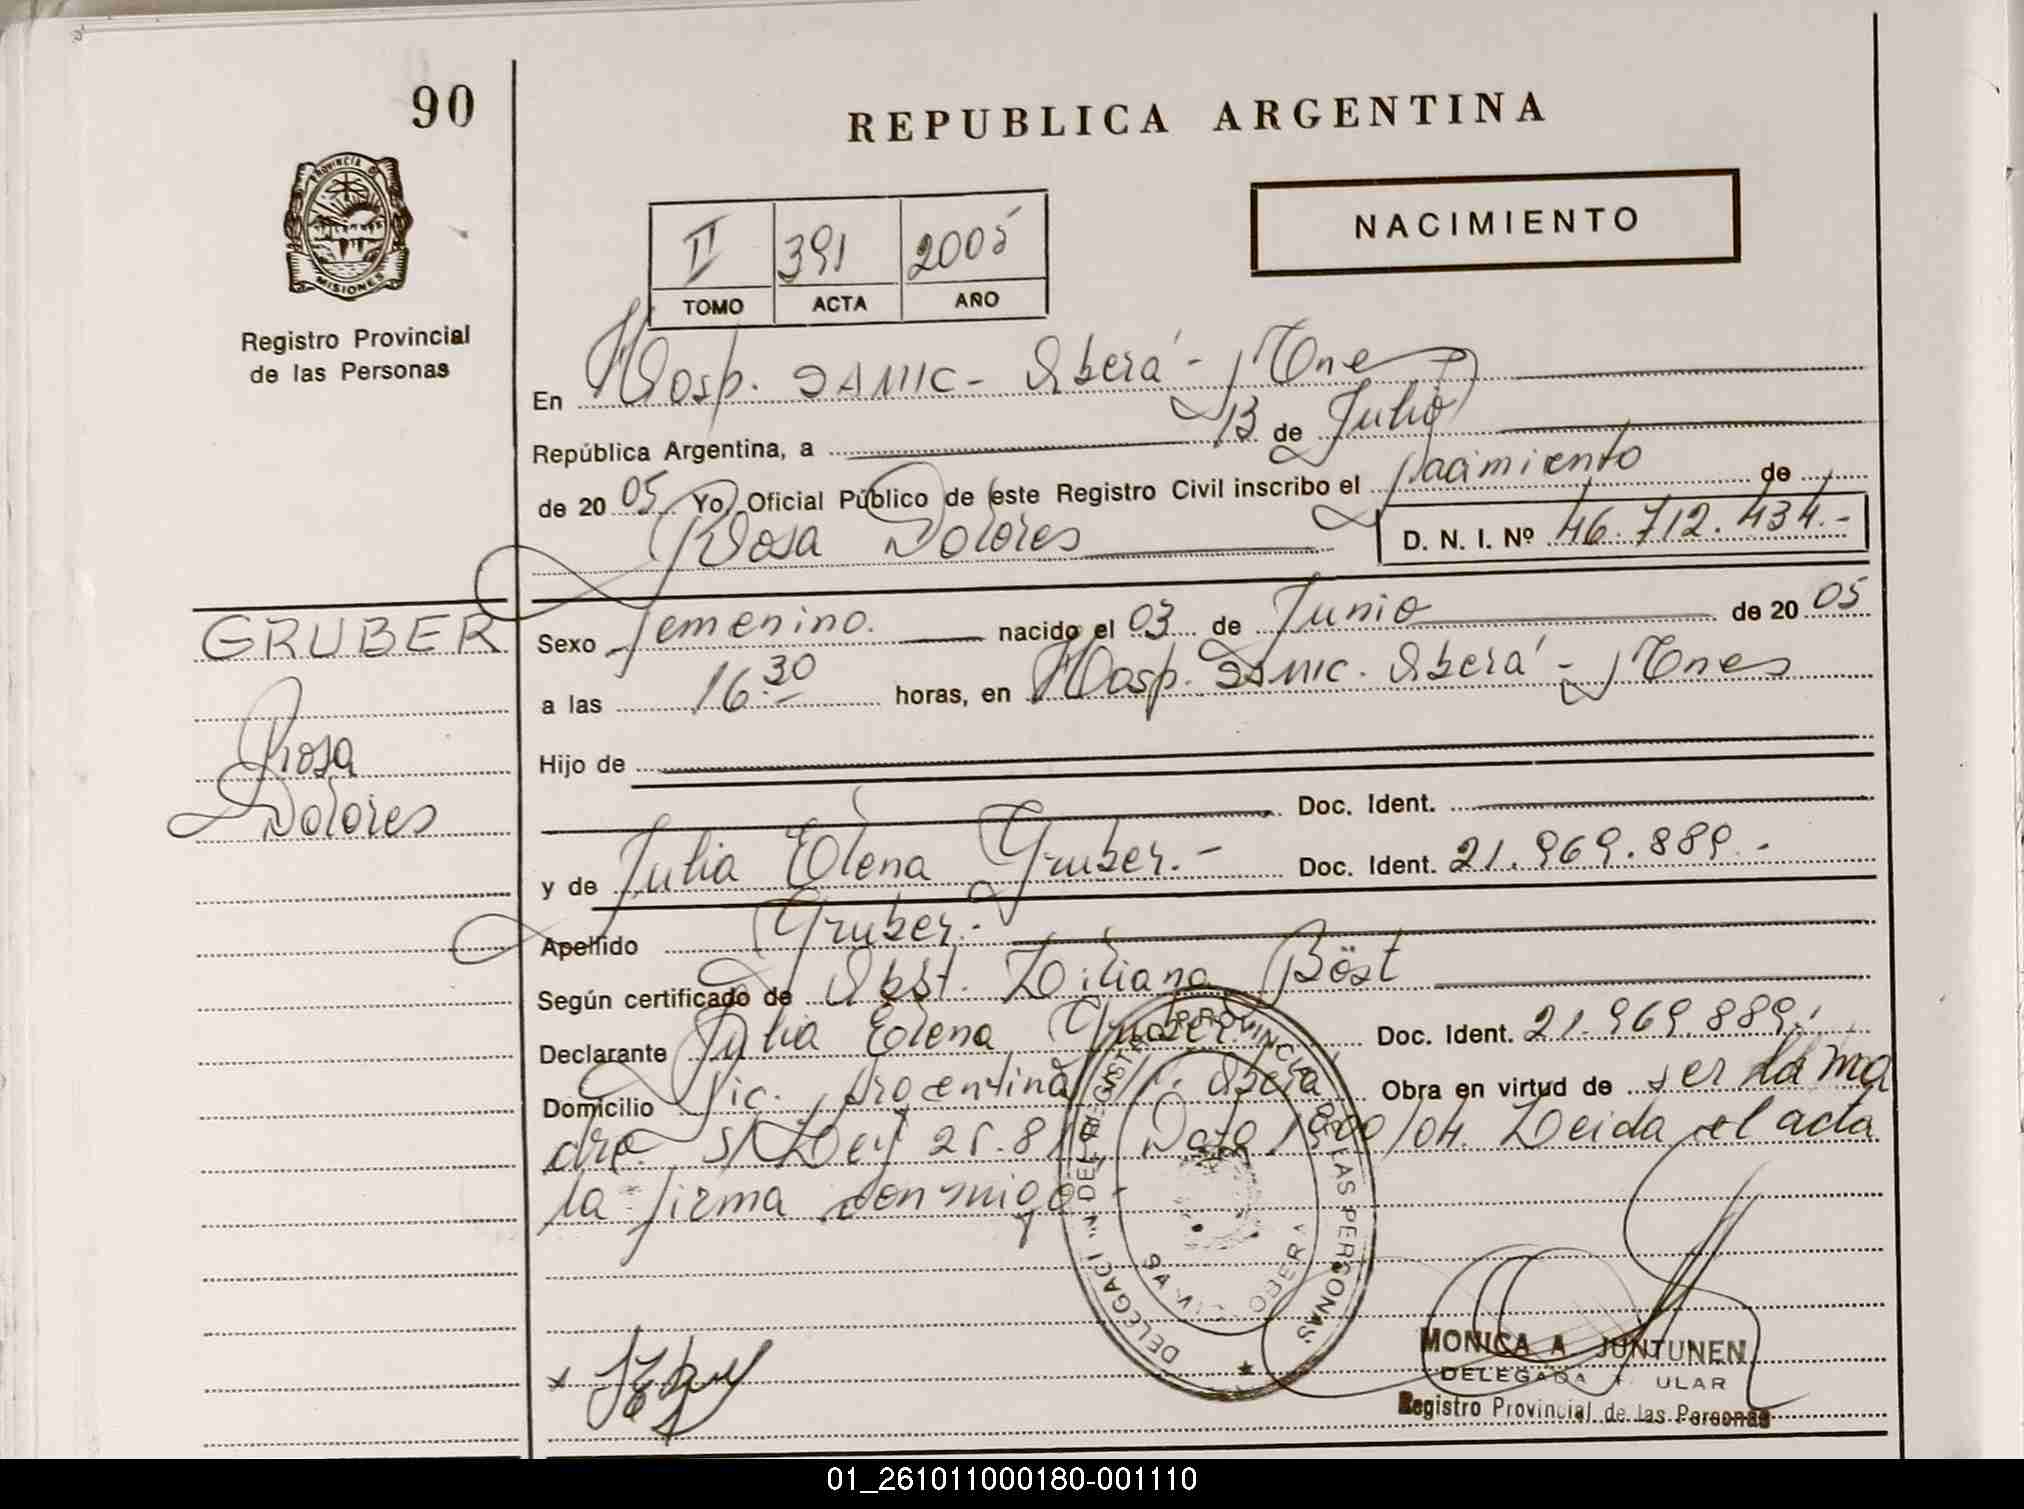 90
REPUBLICA ARGENTINA
PROVINCIA DE
MISIONES
Registro Provincial
de las Personas
NACIMIENTO
II 391 2005
TOMO ACTA AÑO
En Hosp. SAMIC - Oberá - Mnes
República Argentina, a 13 de Julio
de 20 05 Yo, Oficial Público de este Registro Civil inscribo el nacimiento de
Rosa Dolores
D. N. I. Nº 46.712.434.-
GRUBER
Rosa
Dolores
Sexo femenino. nacido el 03 de Junio de 20 05
a las 16.30 horas, en Hosp. SAMIC. Oberá - Mnes
Hijo de
Doc. Ident.
y de Julia Elena Gruber.- Doc. Ident. 21.969.889.-
Apellido Gruber.-
Según certificado de Obst. Liliana Böst
Declarante Julia Elena Gruber Doc. Ident. 21.969.889.-
Domicilio Pic. Argentina Oberá Obra en virtud de ser la ma
dre. S/Ley 25.81 Leida el acta
la firma conmigo.-
REGISTRO PROVINCIAL DE LAS PERSONAS
SAMIC OBERA
MONICA A. JUNTUNEN
DELEGADA
Registro Provincial de las Personas
01_261011000180-001110